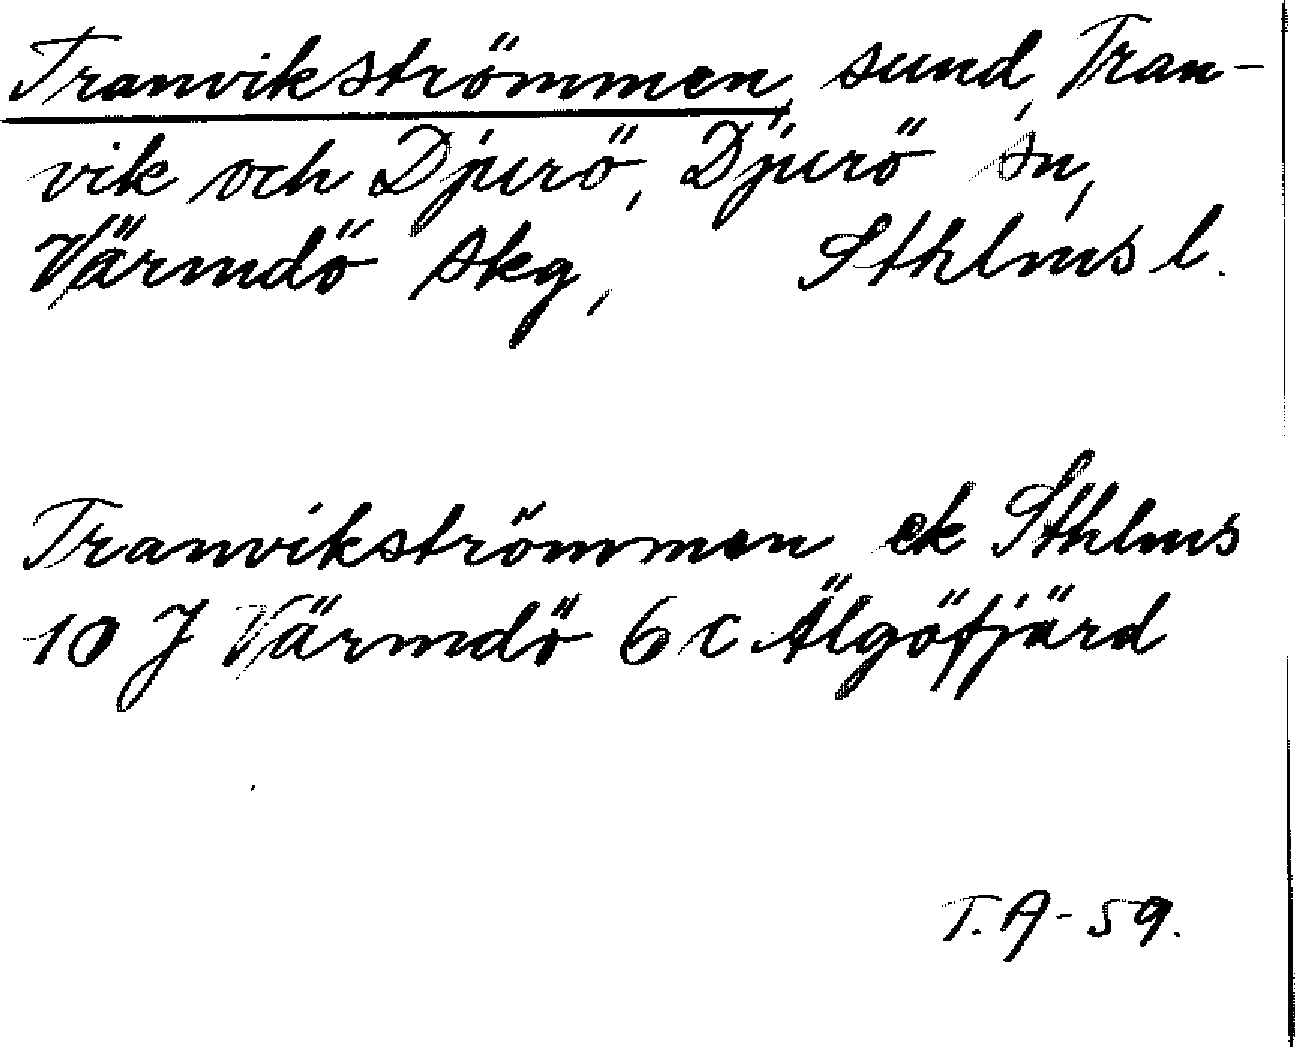 Tranvikströmmen, sund, Tran-
vik och Djurö, Djurö sn,
Värmdö skg, Sthlms l.
Tranvikströmmen ek Sthlms
10 J Värmdö 6 c Älgöfjärd
T.A-59.